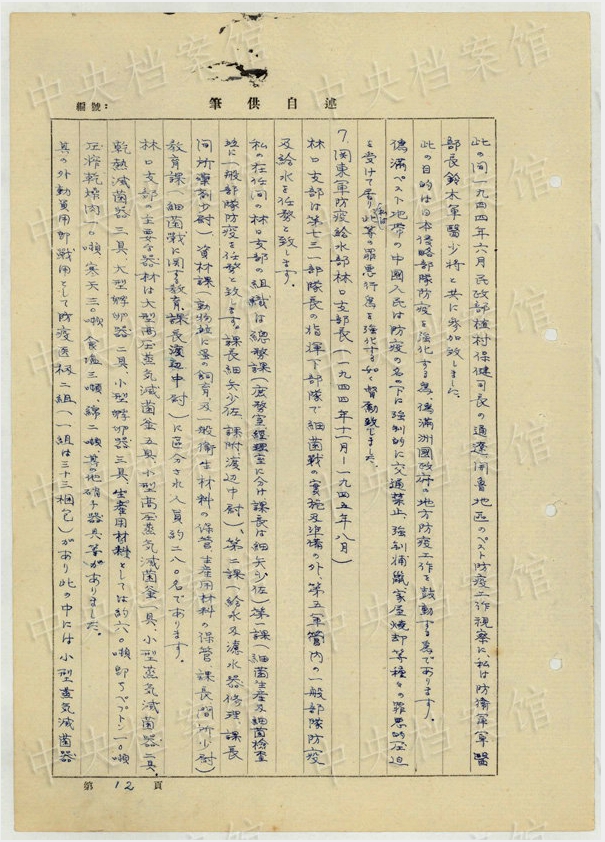 編號：
筆供自述
此の間一九四四年六月民政部植村保健司長の通遼、開魯地區のペスト防疫工作視察に、私は防衛軍軍醫
部長鈴木軍醫少將と共に参加致しました。
此の目的は日本侵略部隊防疫を強化する為、偽満洲國政府の地方防疫工作を鼓動する為であります。
偽満ペスト地帯の中國人民は防疫の名の下に強制的に交通禁止、強制捕鼠家屋燒却等種々の罪悪的圧迫
を受けて居り此等の罪悪行為を強化する如く督励致しました。
7. 関東軍防疫給水部林口支部長（一九四四年十一月－一九四五年八月）
林口支部は第七三一部隊長の指揮下部隊で細菌戰の実施及準備の外、第五軍管内の一般部隊防疫
及給水を任務と致します。
私の在任间の林口支部の組織は總務課（庶務室經理室に分け課長は細矢少佐）第一課（細菌生産及細菌檢査
並に一般部隊防疫を任務と致します。課長細矢少佐、課附渡辺中尉）、第二課（給水及濾水器修理、課長
间所藥剤少尉）、資材課（動物並に蚤の飼育、及一般衛生材料の保管、生産用材料の保管、課長間所少尉）
教育課（細菌戰に関する教育、課長渡辺中尉）に區分され人員約二八〇名であります。
林口支部の主要な器材は大型高圧蒸気滅菌釜五具、小型高圧蒸気滅菌釜一具、小型蒸気滅菌器二具、
乾熱滅菌器三具、大型孵卵器二具、小型孵卵器三具、生産用材料としては約六〇噸即ちペプトン一〇噸
圧搾乾燥肉一〇噸、寒天三〇噸、食塩三噸、綿二噸、其の他硝子器具等がありました。
其の外動員用即戰用として防疫医极二組（一組は三十三梱包）があり此の中には小型蒸気滅菌器
第 12 頁
中央档案馆